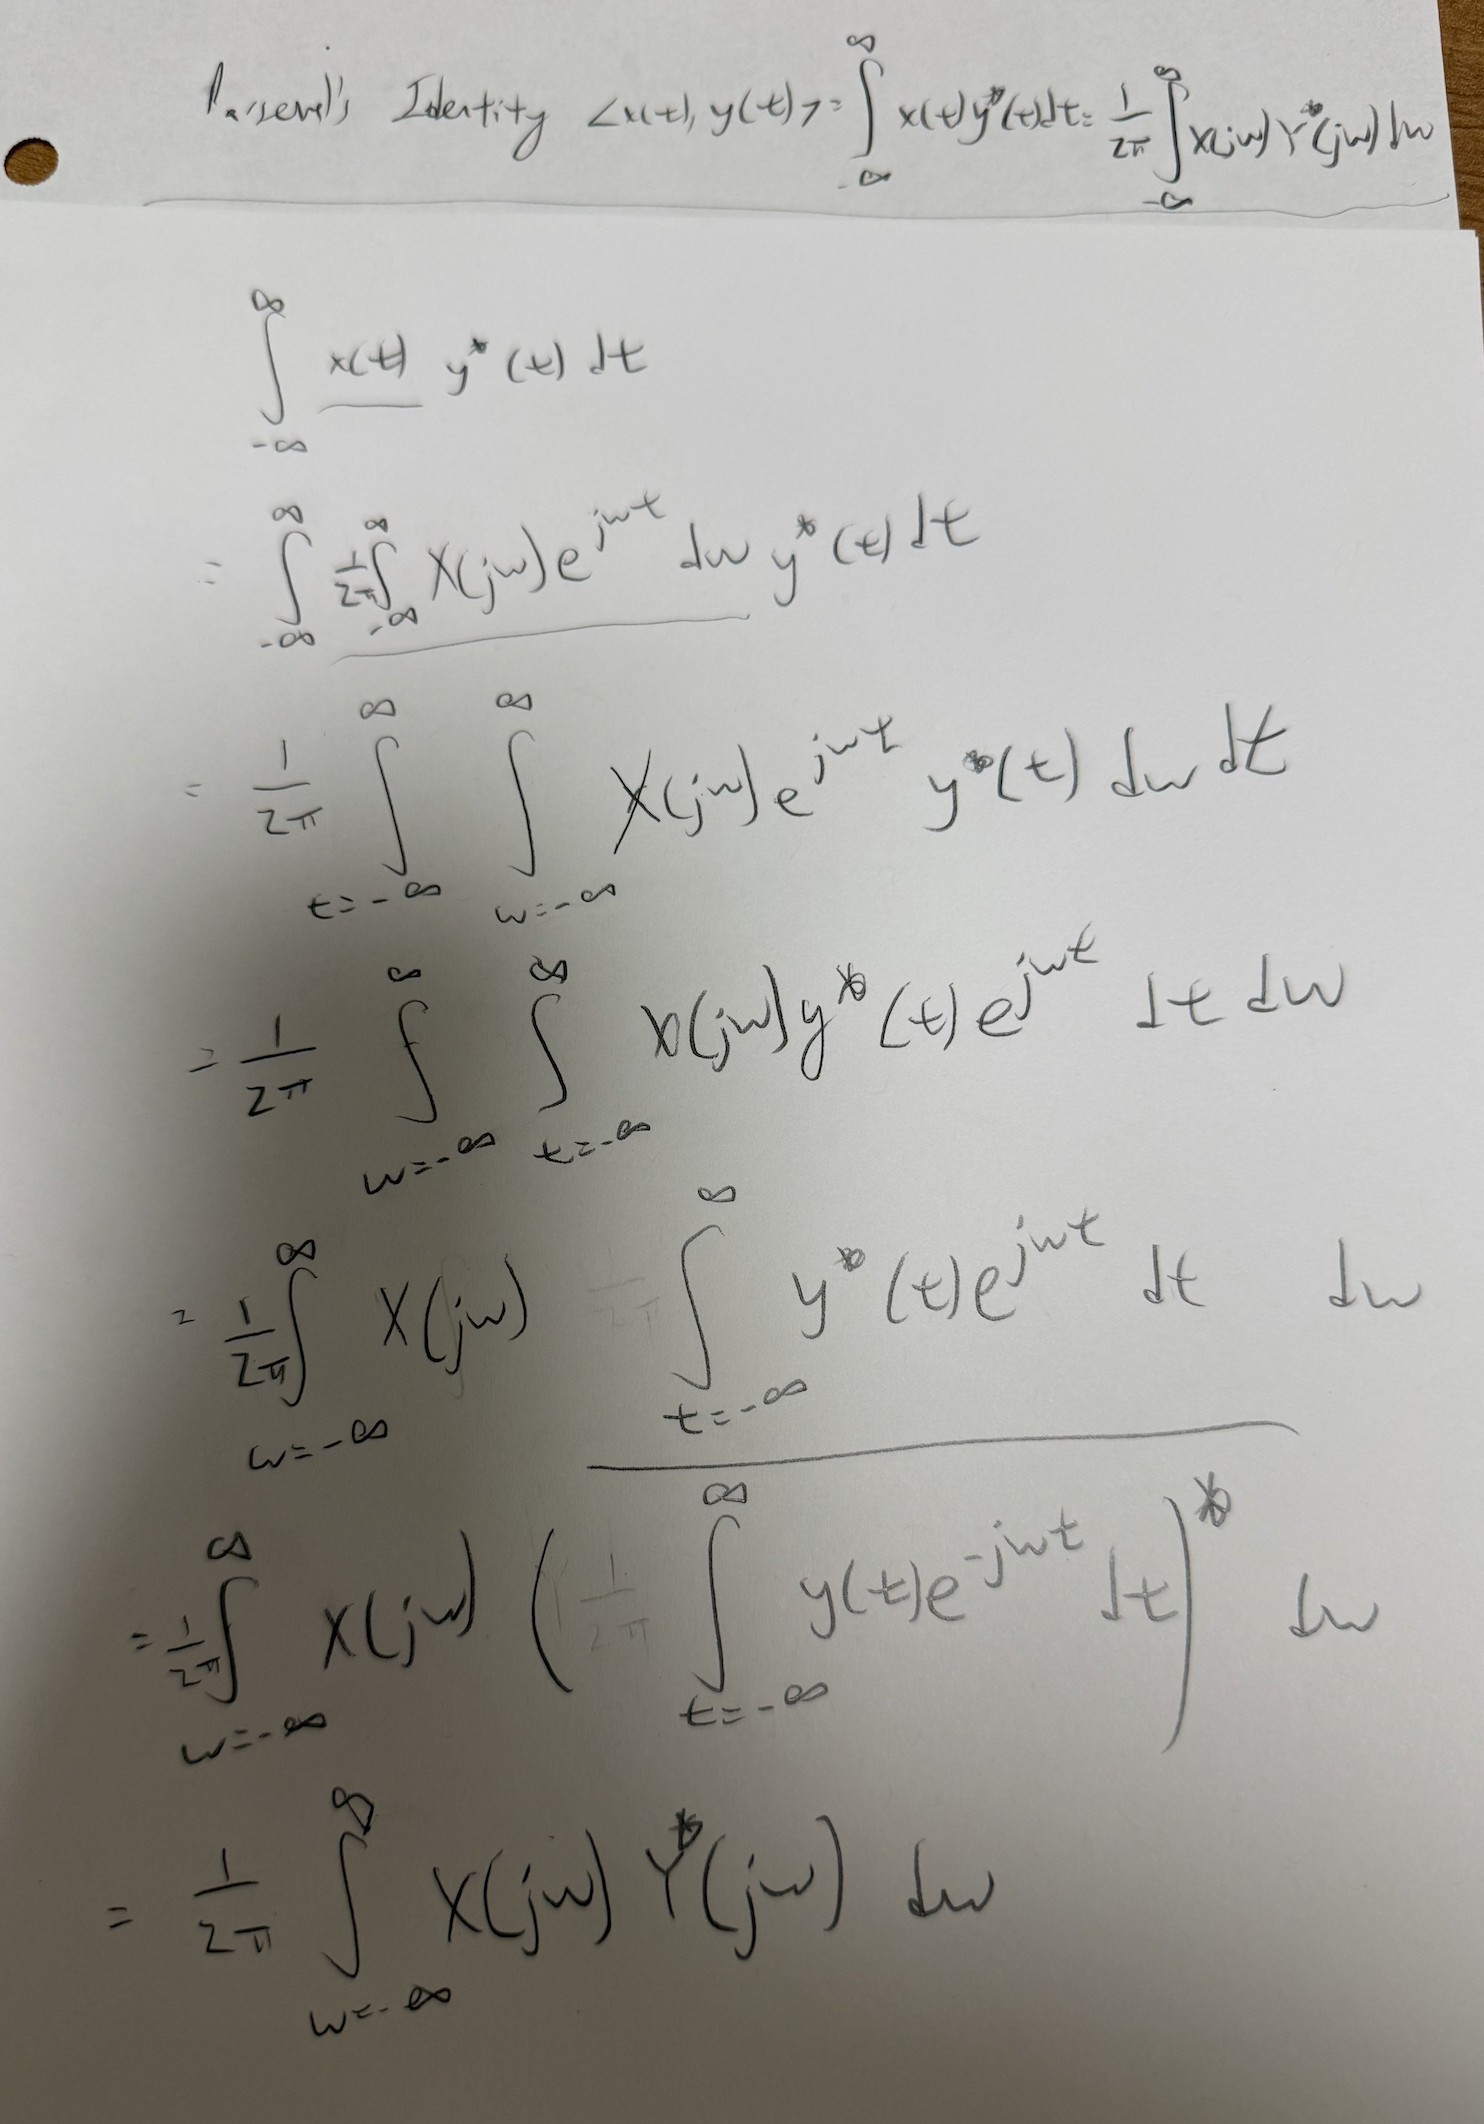 Parseval's Identity <x(t), y(t)> = ∫_{-∞}^{∞} x(t) y*(t) dt = 1/2π ∫_{-∞}^{∞} X(jw) Y*(jw) dw
∫_{-∞}^{∞} x(t) y*(t) dt
= ∫_{-∞}^{∞} 1/2π ∫_{-∞}^{∞} X(jw) e^{jwt} dw y*(t) dt
= 1/2π ∫_{t=-∞}^{∞} ∫_{w=-∞}^{∞} X(jw) e^{jwt} y*(t) dw dt
= 1/2π ∫_{w=-∞}^{∞} ∫_{t=-∞}^{∞} X(jw) y*(t) e^{jwt} dt dw
= 1/2π ∫_{w=-∞}^{∞} X(jw) ∫_{t=-∞}^{∞} y*(t) e^{jwt} dt dw
= 1/2π ∫_{w=-∞}^{∞} X(jw) ( ∫_{t=-∞}^{∞} y(t) e^{-jwt} dt )* dw
= 1/2π ∫_{w=-∞}^{∞} X(jw) Y*(jw) dw